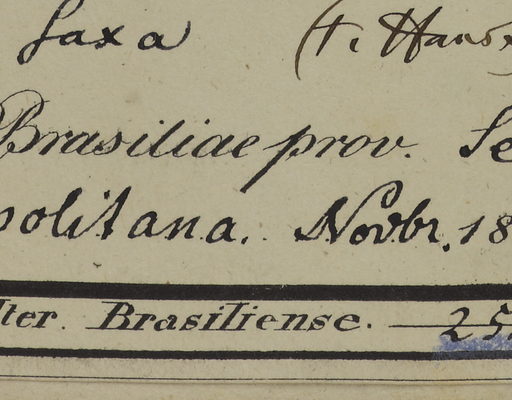 saxa (T. Hans
Brasiliae prov. Se
politana. Novbr. 18
Iter Brasiliense. — 25